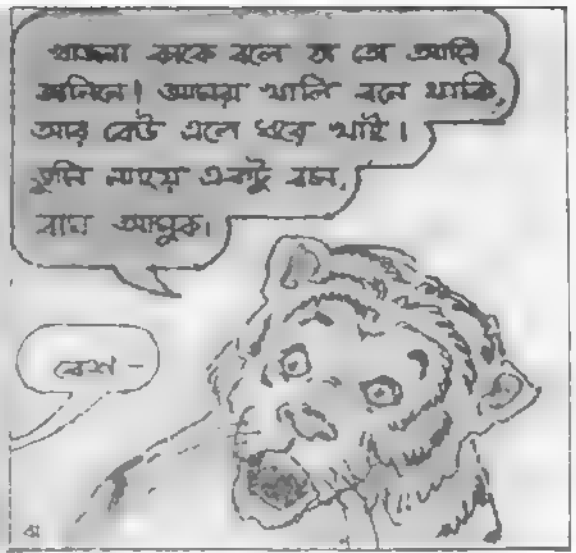 খাজনা কাকে বলে তা তো আমি
জানিনে! আমরা খালি বনে থাকি,
আর কেউ এলে ধরে খাই।
তুমি নাহয় একটু বস,
বাঘ আসুক।
বেশ -